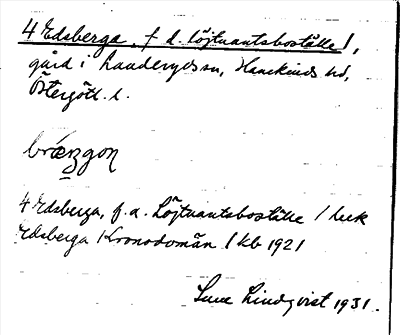 4 Edsberga, f. d. löjtnantsboställe 1,
gård i Landeryds sn, Hanekinds hd,
Östergötl. l.
brǽzgon
4 Edsberga, f. d. Löjtnantsboställe 1 beck
Edsberga Kronodomän 1 kb 1921
Sune Lindqvist 1931.